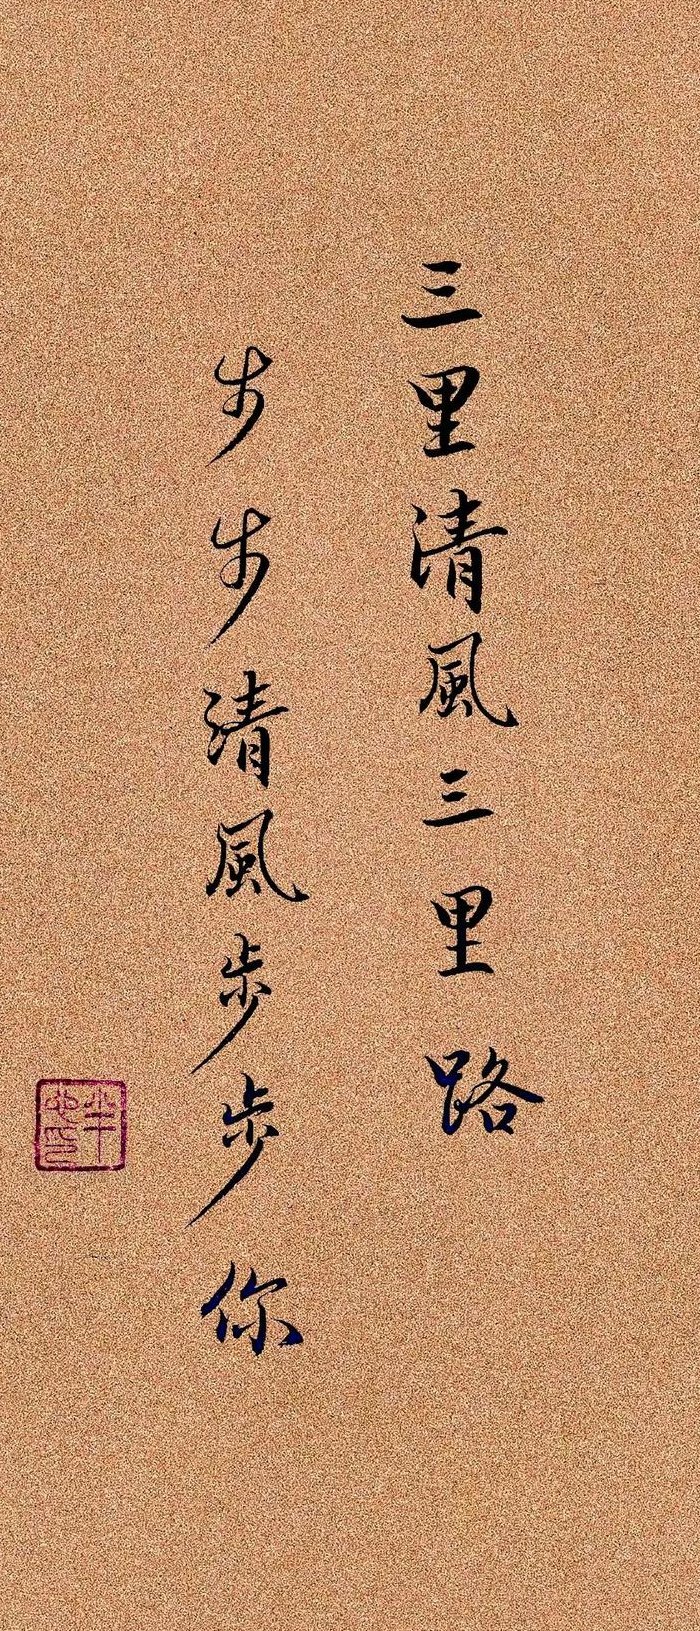 三里清風三里路
步步清風步步你